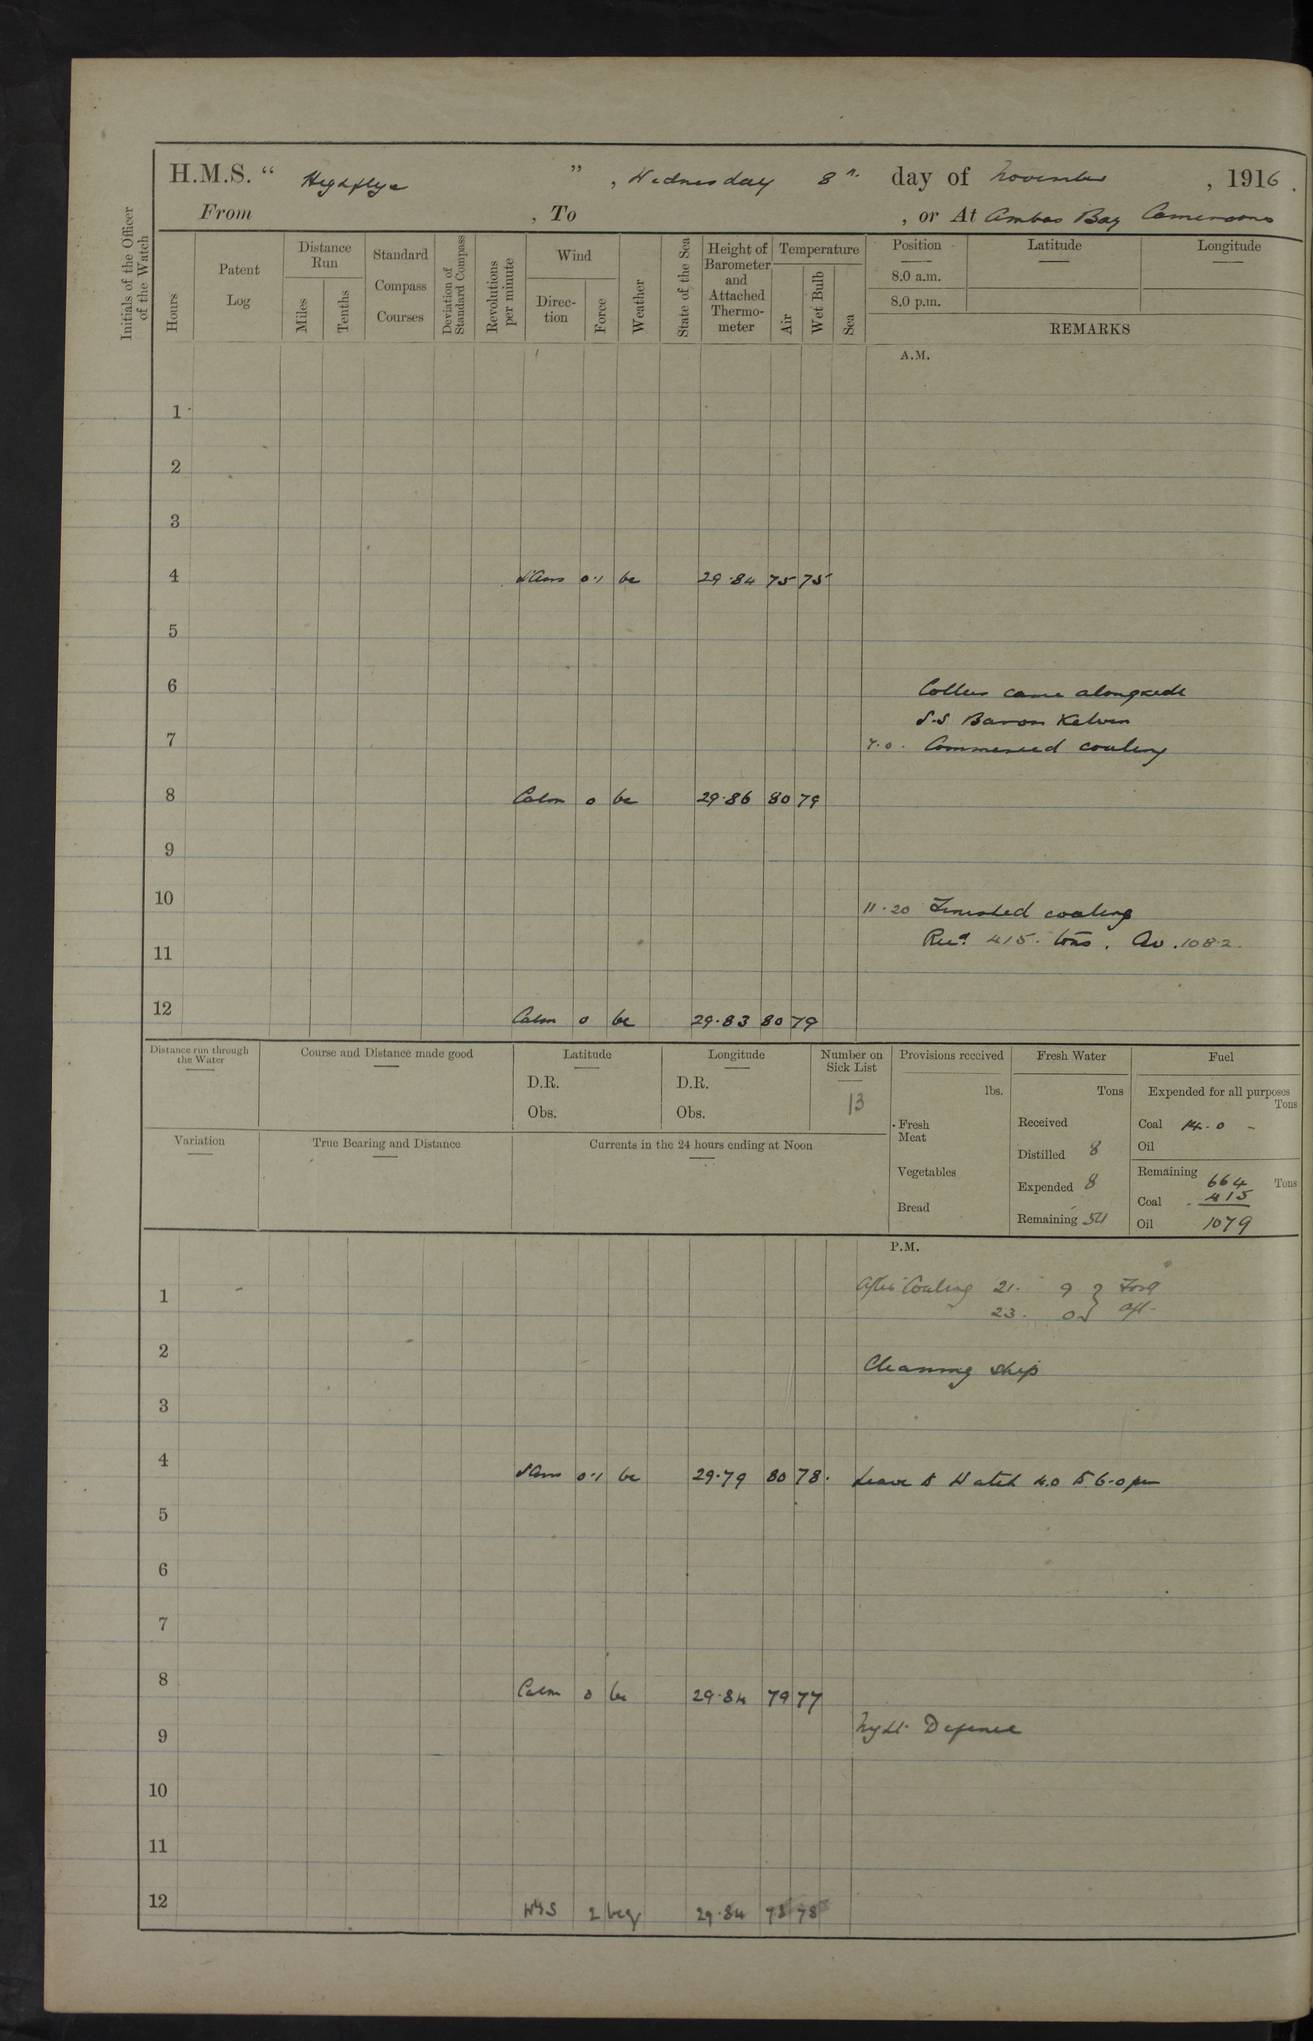 H.M.S. “ Highflyer ” , Wednesday 8th day of November , 1916 .
From , To , or At Ambas Bay Cameroons
Initials of the Officer of the Watch
Hours
Patent Log
Distance Run
Miles
Tenths
Standard Compass Courses
Deviation of Standard Compass
Revolutions per minute
Wind
Direc-tion
Force
Weather
State of the Sea
Height of Barometer and Attached Thermo-meter
Temperature
Air
Wet Bulb
Sea
Position Latitude Longitude
8.0 a.m.
8.0 p.m.
REMARKS
A.M.
1
2
3
4 0.1 bc 29.84 75 75
5
6 Collier came alongside
S.S Baron Kelvin
7 7.0. Commenced coaling
8 Calm 0 bc 29.86 80 79
9
10 11.20 Finished coaling
Recd 415. tons. Av. 108.2.
11
12 Calm 0 bc 29.83 80 79
Distance run through the Water
Course and Distance made good
Latitude
D.R.
Obs.
Longitude
D.R.
Obs.
Number on Sick List
13
Provisions received
lbs.
Fresh Meat
Vegetables
Bread
Fresh Water
Tons
Received
Distilled 8
Expended 8
Remaining 54
Fuel
Expended for all purposes
Tons
Coal 14.0 -
Oil
Remaining 664 Tons
Coal 415
Oil 1079
Variation
True Bearing and Distance
Currents in the 24 hours ending at Noon
P.M.
1 After Coaling 21. 9 } Ford
23. 0 } aft.
2 Cleaning ship
3
4 0.1 bc 29.79 80 78. Leave to Watch 4.0 to 6.0 pm
5
6
7
8 Calm 0 bc 29.84 79 77
9 Night Defence
10
11
12 2 29.84 78 78